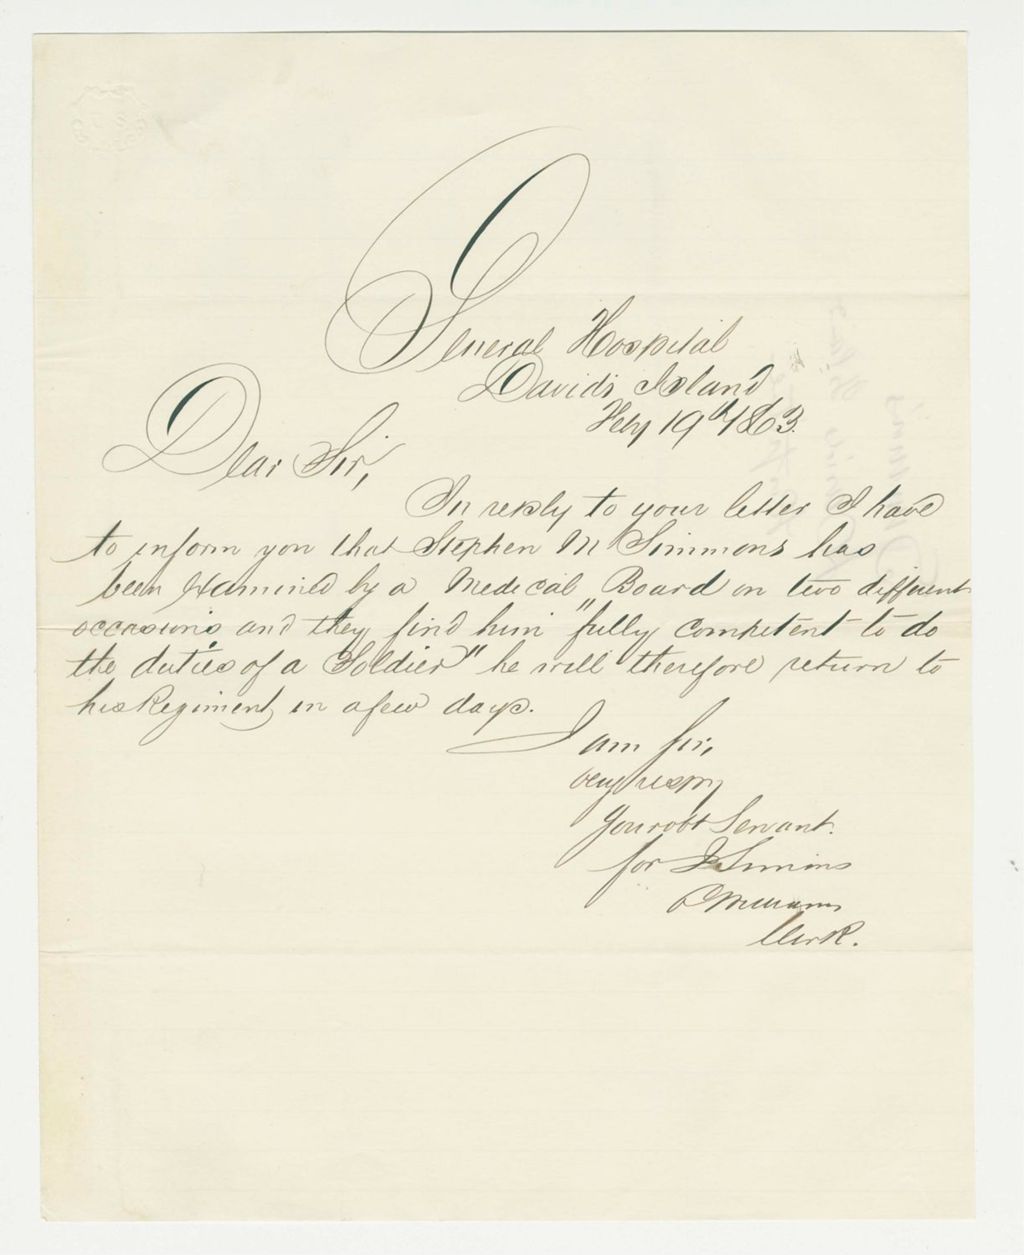 General Hospital
Davids Island
Feby 19th 1863.
Dear Sir,
In reply to your letter I have
to inform you that Stephen M Simmons has
been examined by a Medical Board on two different
occasions and they find him "fully competent to do
the duties of a Soldier" he will therefore return to
his Regiment in a few days.
I am Sir,
very respy
Your obt Servant.
for J Simons
Clerk.